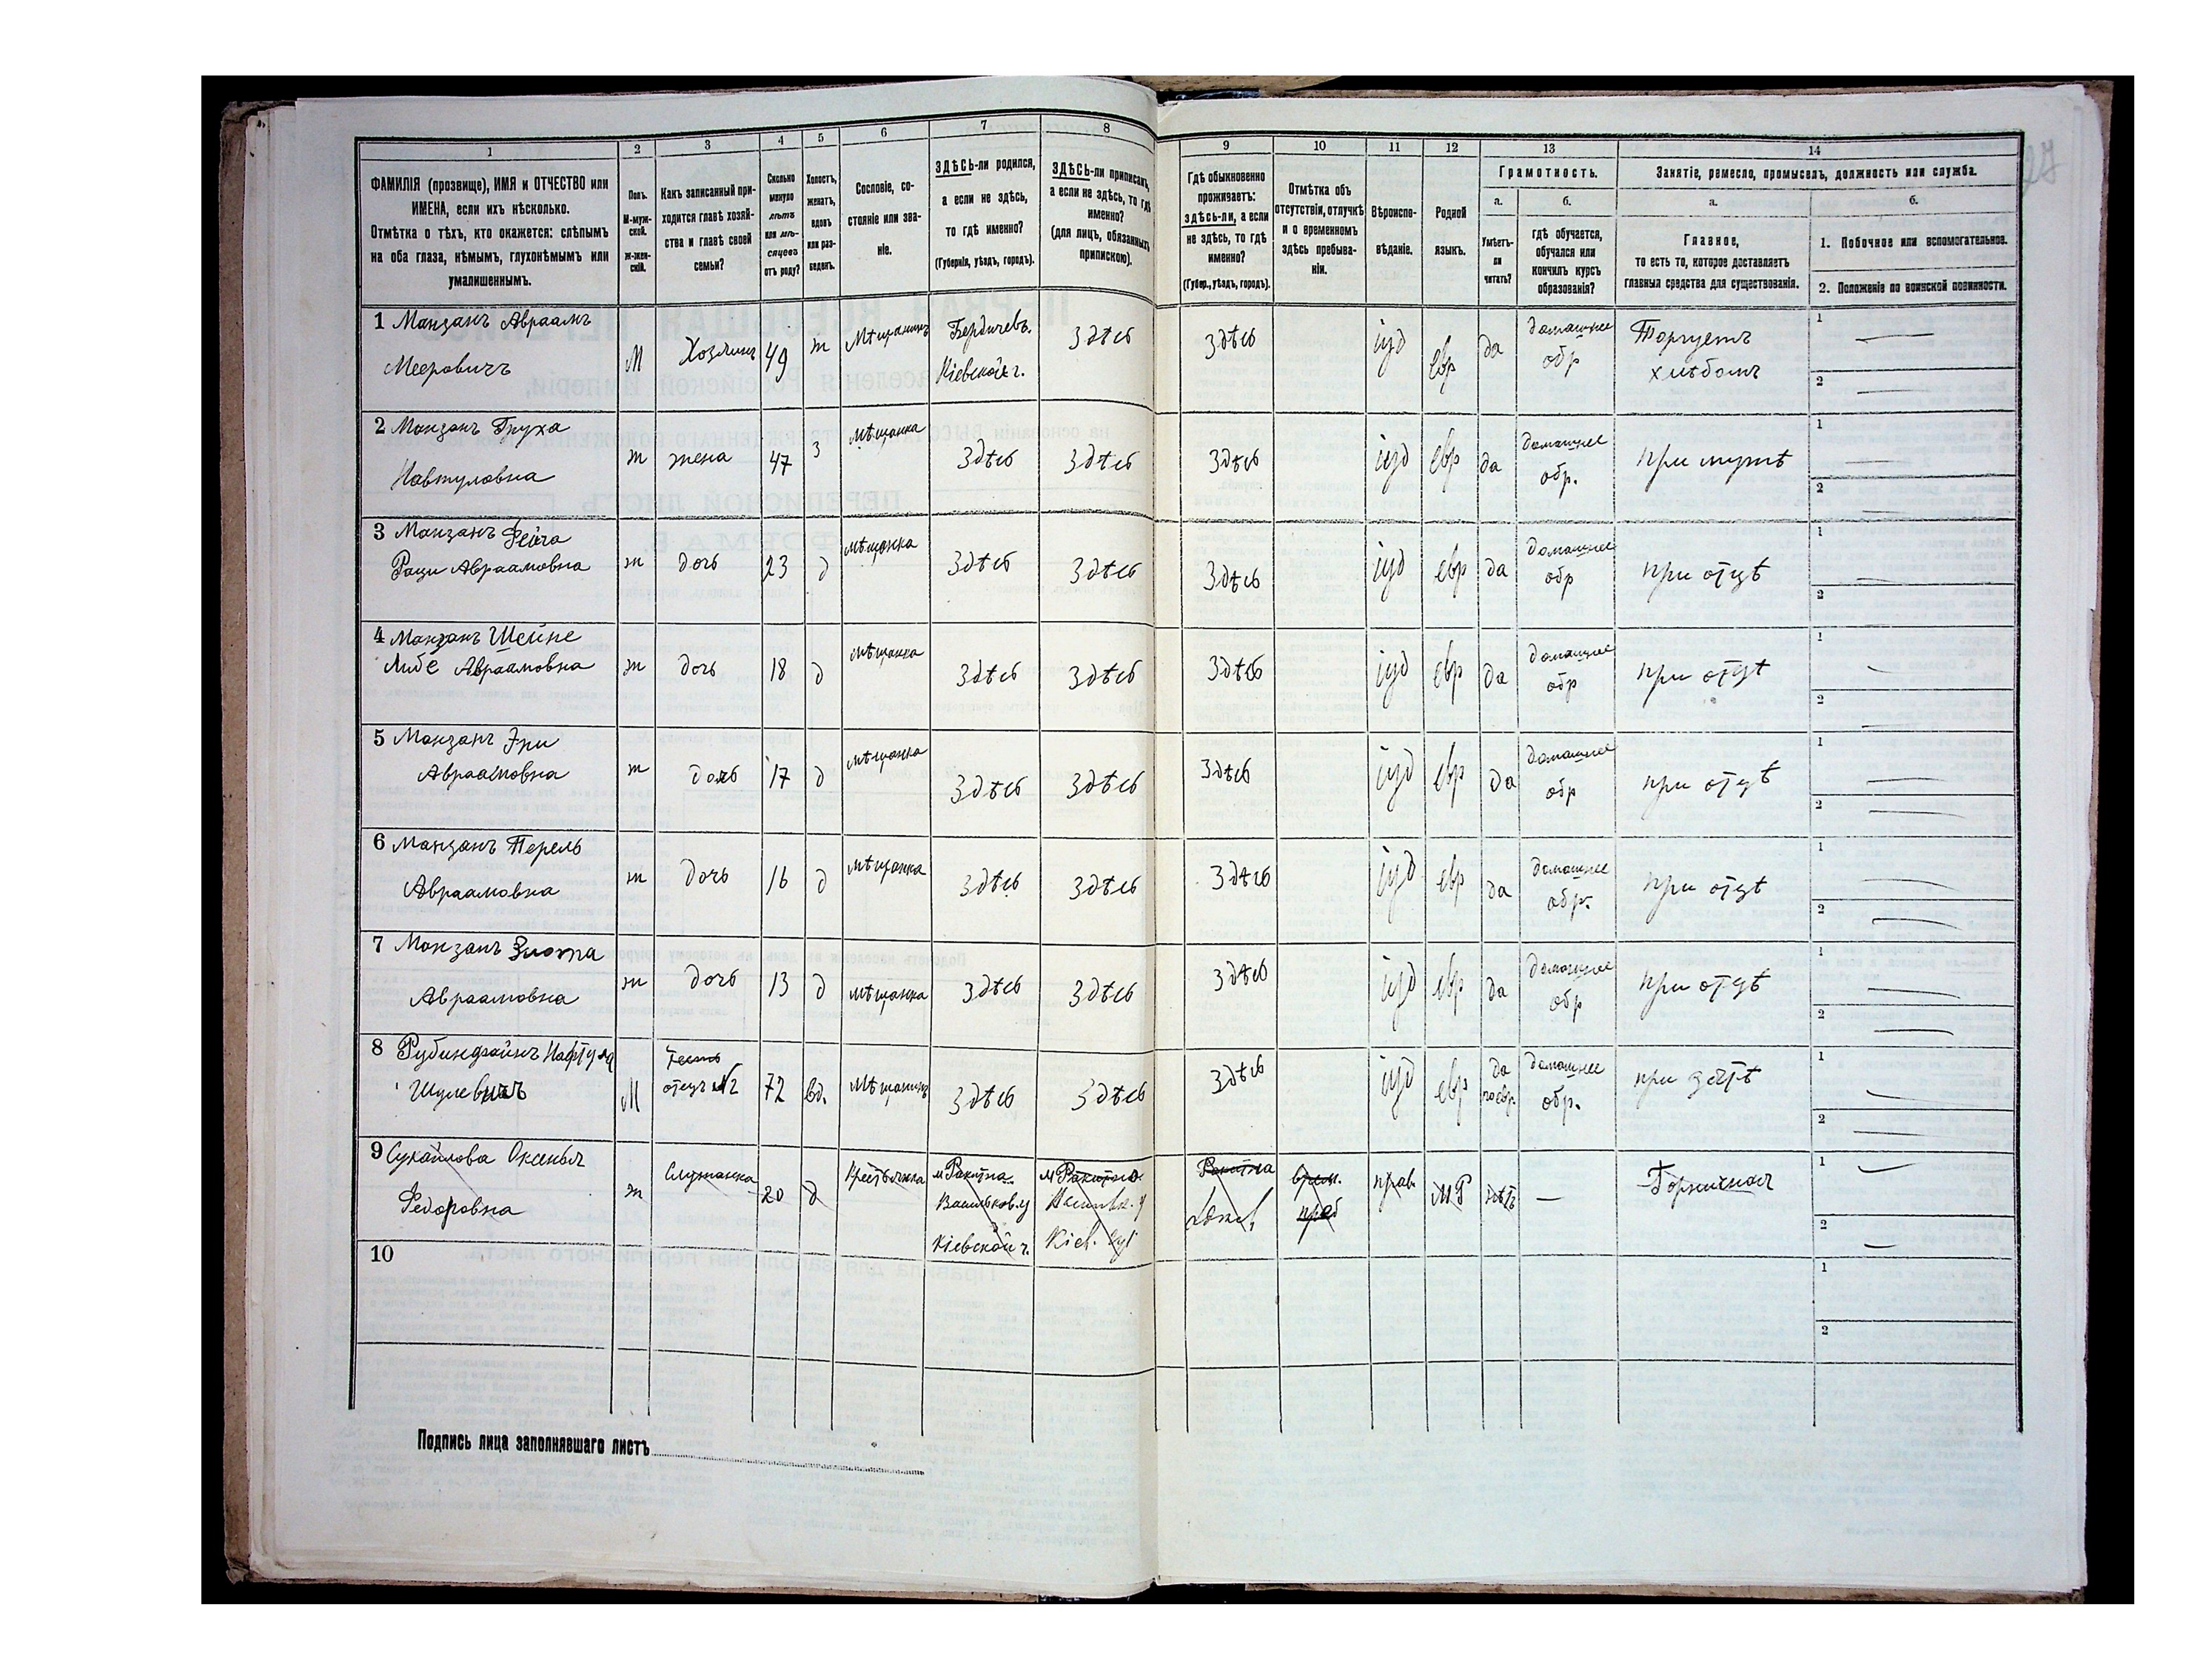 1 2 3 4 5 6 7 8 9 10 11 12 13 14
ФАМИЛІЯ (прозвище), ИМЯ и ОТЧЕСТВО или
ИМЕНА, если ихъ нѣсколько.
Отмѣтка о тѣхъ, кто окажется: слѣпымъ
на оба глаза, нѣмымъ, глухонѣмымъ или
умалишеннымъ.
Полъ.
М-муж-
ской.
ж-жен-
скій.
Какъ записанный при-
ходится главѣ хозяй-
ства и главѣ своей
семьи?
Сколько
минуло
лѣтъ
или мѣ-
сяцевъ
отъ роду?
Холостъ,
женатъ,
вдовъ
или раз-
веденъ.
Сословіе, со-
стояніе или зва-
ніе.
ЗДѢСЬ-ли родился,
а если не здѣсь,
то гдѣ именно?
(Губернія, уѣздъ, городъ).
ЗДѢСЬ-ли приписанъ,
а если не здѣсь, то гдѣ
именно?
(для лицъ, обязанныхъ
припискою).
Гдѣ обыкновенно
проживаетъ:
здѣсь-ли, а если
не здѣсь, то гдѣ
именно?
(Губер., уѣздъ, городъ).
Отмѣтка объ
отсутствіи, отлучкѣ
и о временномъ
здѣсь пребыва-
ніи.
Вѣроиспо-
вѣданіе.
Родной
языкъ.
Грамотность.
а.
Умѣетъ-
ли
читать?
б.
гдѣ обучается,
обучался или
кончилъ курсъ
образованія?
Занятіе, ремесло, промыселъ, должность или служба.
а.
Главное,
то есть то, которое доставляетъ
главныя средства для существованія.
б.
1. Побочное или вспомогательное.
2. Положеніе по воинской повинности.
1 Манзанъ Авраамъ
Мееровичъ
М
Хозяинъ
49
ж
Мѣщанинъ
Бердичевъ.
Кіевской г.
Здѣсь
Здѣсь
іуд
евр
да
домашнее
обр
Торгуетъ
хлѣбомъ
1
2
2 Манзанъ Груха
Навтуловна
ж
жена
47
З
мѣщанка
Здѣсь
Здѣсь
Здѣсь
іуд
евр
да
домашнее
обр.
при мужѣ
1
2
3 Манзанъ Фейга
Раци Авраамовна
ж
дочь
23
д
мѣщанка
Здѣсь
Здѣсь
Здѣсь
іуд
евр
да
домашнее
обр
при отцѣ
1
2
4 Манзанъ Шейне
Либе Авраамовна
ж
дочь
18
д
мѣщанка
Здѣсь
Здѣсь
Здѣсь
іуд
евр
да
домашнее
обр
при отцѣ
1
2
5 Манзанъ
Авраамовна
ж
дочь
17
д
мѣщанка
Здѣсь
Здѣсь
Здѣсь
іуд
евр
да
домашнее
обр
при отцѣ
1
2
6 Манзанъ Перель
Авраамовна
ж
дочь
16
д
мѣщанка
Здѣсь
Здѣсь
Здѣсь
іуд
евр
да
домашнее
обр.
при отцѣ
1
2
7 Манзанъ Злота
Авраамовна
ж
дочь
13
д
мѣщанка
Здѣсь
Здѣсь
Здѣсь
іуд
евр
да
домашнее
обр
при отцѣ
1
2
8 Рубинфайнъ Нафтула
Шулевичъ
М
Тесть
отецъ №2
72
вд.
Мѣщанинъ
Здѣсь
Здѣсь
Здѣсь
іуд
евр
да
по евр.
домашнее
обр.
при зятѣ
1
2
9 Оксенья
Федоровна
ж
Служанка
20
д
Крестьянка
м Ракитна
Васильков. у
Кіевской г.
м Ракитна
Кіев. губ
Ракитна
врем.
преб
прав.
МР
нѣтъ
Горничная
1
2
10
1
2
Подпись лица заполнявшаго листъ